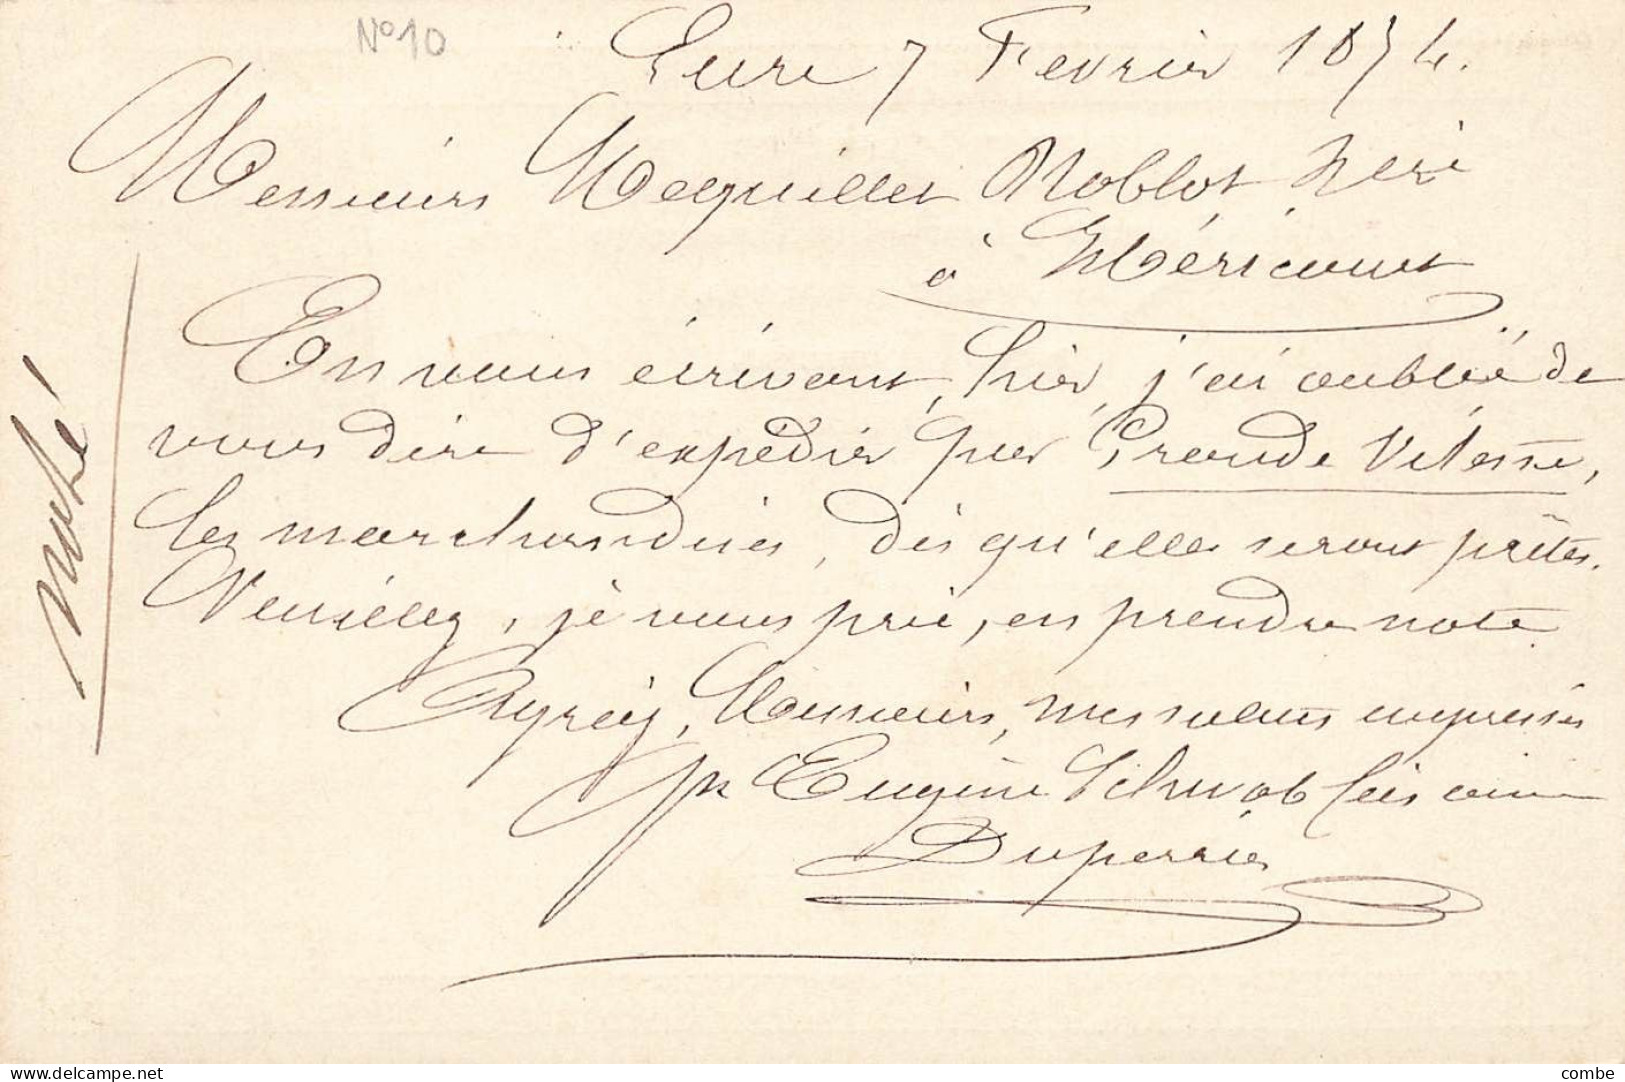 N° 10
Lure 7 Fevrier 1874.
Messieurs Mequillet Noblot
à Héricourt
En vous écrivant, hier, j'ai oublié de
vous dire d'expédier par Grande Vitesse,
les marchandises, dès qu'elles seront prêtes.
Veuillez, je vous prie, en prendre note
Agréez, Messieurs, mes saluts empressés
Eugène Schwob fils ainé
Duperrier
Noté
delcampe.net
combe